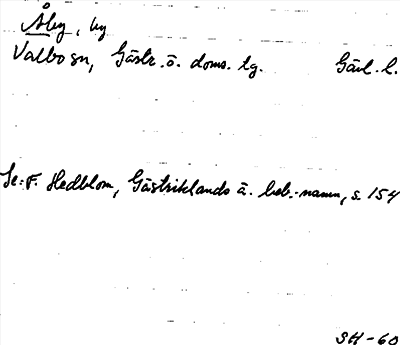 Åby, by
Valbo sn, Gästr. ö. doms. tg. Gävl. l.
Se: F. Hedblom, Gästriklands ä. beb.-namn, s. 154
SH-60